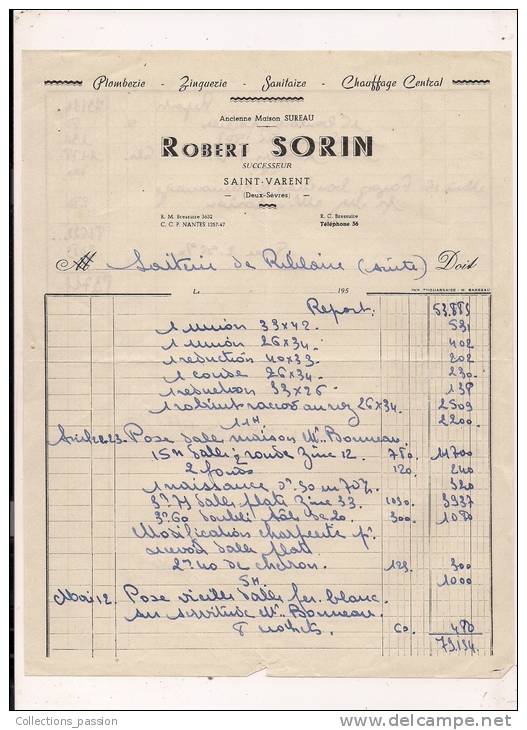 Plomberie - Zinguerie - Sanitaire - Chauffage Central
Ancienne Maison SUREAU
ROBERT SORIN
SUCCESSEUR
SAINT-VARENT
(Deux-Sèvres)
R. M. Bressuire 3632
C. C. P. NANTES 1257-47
R. C. Bressuire
Téléphone 56
M Laiterie de Riblaire (suite) Doit
Le 195
IMP. THOUARSAISE - M. BARREAU
Report: 53.883
1 union 33x42. 531
1 union 26x34 402
1 reduction 40x33. 202
1 coude 26x34. 230
1 reduction 33x26 138
1 robinet 26x34. 2503
11H 2200
22.23 Pose dalle maison Mr Bonneau.
15M dalle ronde zinc 12. 780. 11700
2 fonds 120. 240
1 naissance 320
3.79 dalle plate zinc 33. 1030. 3937
3.60 300. 1080
Modification charpente pr
dalle plat
2.40 de chevron. 125. 300
5H. 1000
Mai 12. Pose vieilles dalles fer blanc
sur servitude Mr Bonneau.
8 crochets. 60. 480
79.134
Collections_passion
delcampe.net